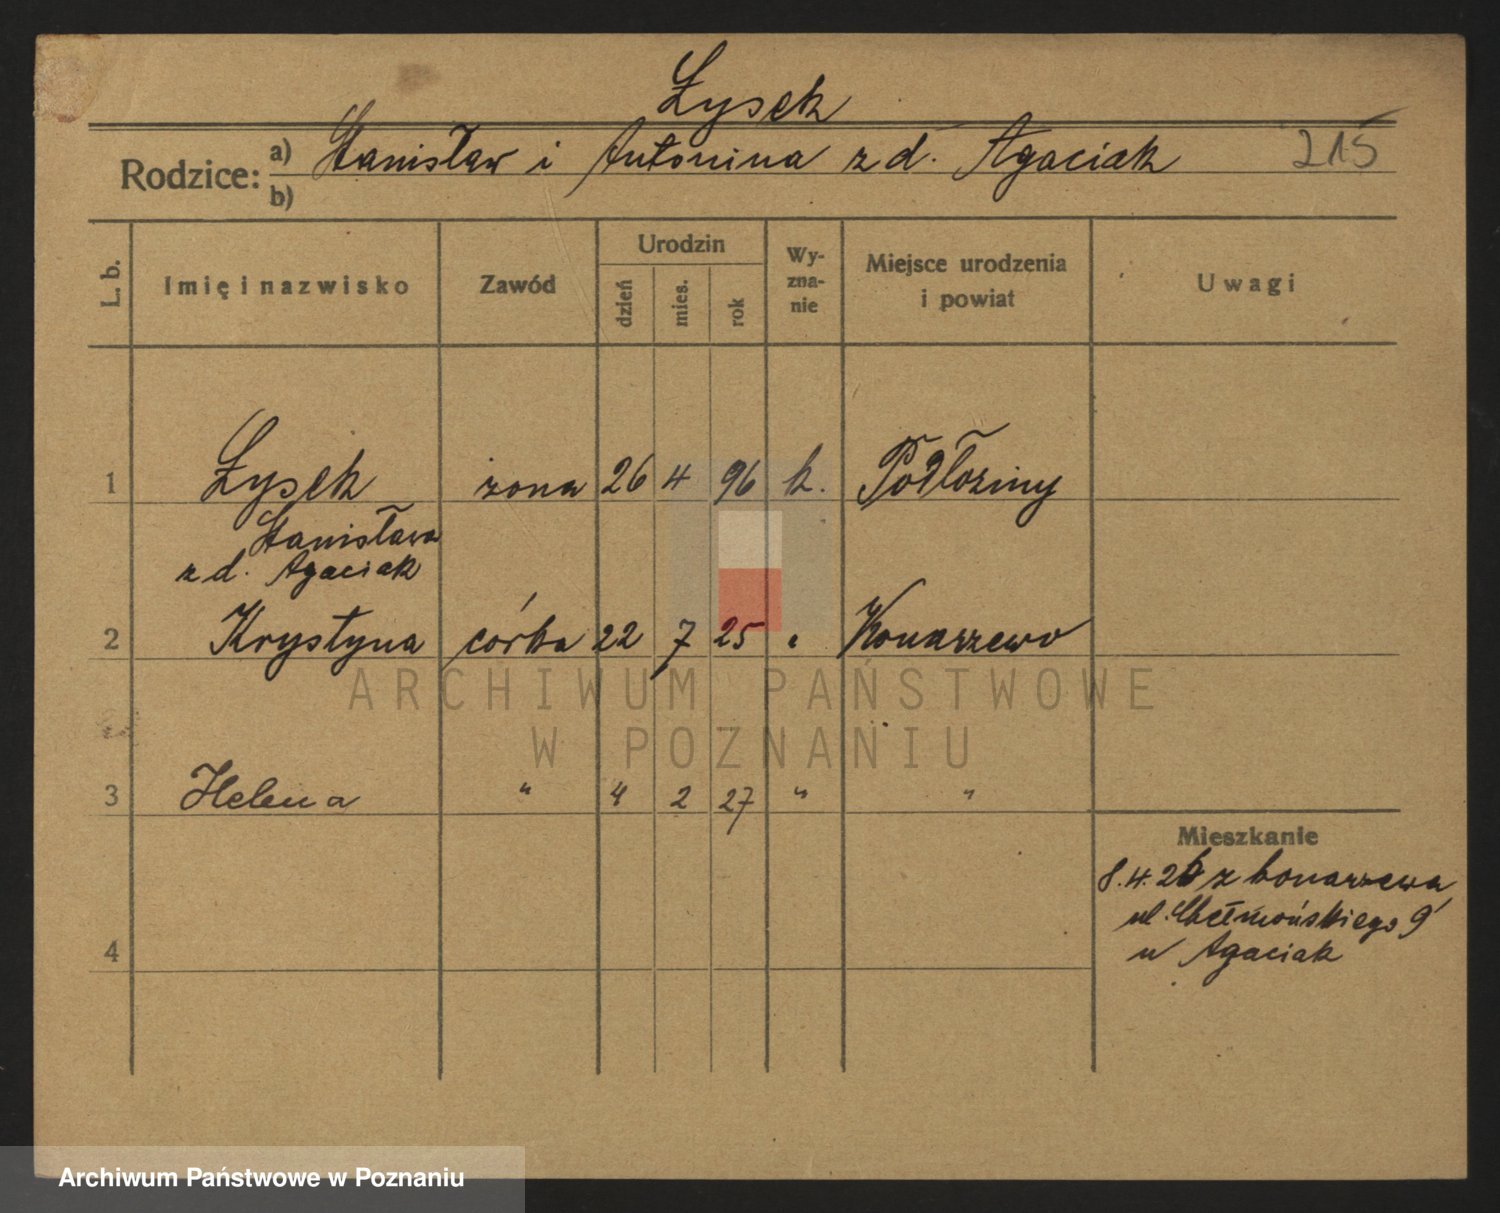 Łysek
Rodzice: a) Stanisław i Antonina z d. Agaciak 215
b)
L. b. Imię i nazwisko Zawód Urodzin dzień mies. rok Wy-zna-nie Miejsce urodzenia i powiat Uwagi
1 Łysek żona 26 4 96 k. Podłoziny
Stanisława
z d. Agaciak
2 Krystyna córka 22 7 25 " Konarzewo
ARCHIWUM PAŃSTWOWE
W POZNANIU
3 Helena " 4 2 27 " "
Mieszkanie
8.4.26 z Konarzewa
ul. Chełmońskiego 9
u Agaciak
4
Archiwum Państwowe w Poznaniu